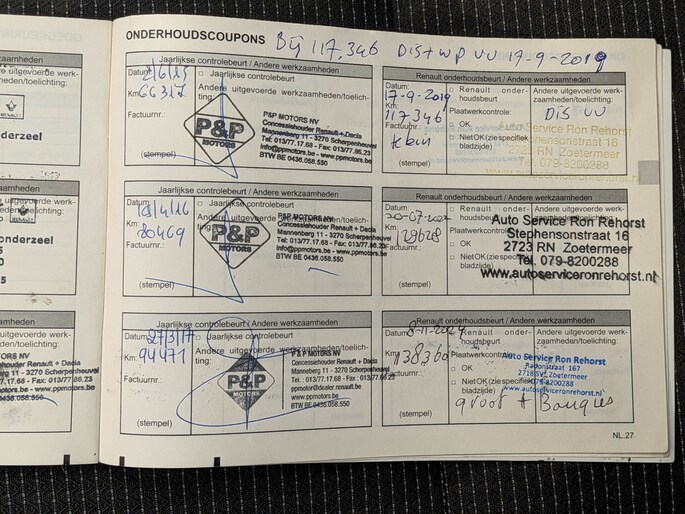 ONDERHOUDSCOUPONS Bij 117.346 Dis + WP VV 17-9-2019
Jaarlijkse controlebeurt / Andere werkzaamheden
Datum:
Km: 66317
Factuurnr.:
(stempel)
Jaarlijkse controlebeurt
Andere uitgevoerde werkzaamheden/toelich-
ting:
P&P
MOTORS
P&P MOTORS NV
Concessiehouder Renault + Dacia
Mannenberg 11 - 3270 Scherpenheuvel
Tel: 013/77.17.68 - Fax: 013/77.86.23
info@ppmotors.be - www.ppmotors.be
BTW BE 0436.058.550
Renault onderhoudsbeurt / Andere werkzaamheden
Datum: 17-9-2019
Km: 117346
Factuurnr.:
(stempel)
Renault onder-
houdsbeurt
Plaatwerkcontrole:
OK
Niet OK (zie specifiek
bladzijde)
Andere uitgevoerde werk-
zaamheden/toelichting:
Dis VV
Auto Service Ron Rehorst
Stephensonstraat 16
2723 RN Zoetermeer
Tel. 079-8200288
Jaarlijkse controlebeurt / Andere werkzaamheden
Datum: 18/4/16
Km: 80469
Factuurnr.:
(stempel)
Jaarlijkse controlebeurt
Andere uitgevoerde werkzaamheden/toelich-
ting:
P&P
MOTORS
P&P MOTORS NV
Concessiehouder Renault + Dacia
Mannenberg 11 - 3270 Scherpenheuvel
Tel: 013/77.17.68 - Fax: 013/77.86.23
info@ppmotors.be - www.ppmotors.be
BTW BE 0436.058.550
Renault onderhoudsbeurt / Andere werkzaamheden
Datum:
Km: 128628
Factuurnr.:
(stempel)
Renault onder-
houdsbeurt
Plaatwerkcontrole:
OK
Niet OK (zie specifiek
bladzijde)
Auto Service Ron Rehorst
Stephensonstraat 16
2723 RN Zoetermeer
Tel. 079-8200288
www.autoserviceronrehorst.nl
Jaarlijkse controlebeurt / Andere werkzaamheden
Datum: 27/3/17
Km: 94471
Factuurnr.:
(stempel)
Jaarlijkse controlebeurt
Andere uitgevoerde werkzaamheden/toelich-
ting:
P&P
MOTORS
P & P MOTORS NV
Concessiehouder Renault + Dacia
Mannenberg 11 - 3270 Scherpenheuvel
Tel.: 013/77.17.68 - Fax: 013/77.86.23
ppmotor@dealer.renault.be
www.ppmotors.be
BTW BE 0436.058.550
Renault onderhoudsbeurt / Andere werkzaamheden
Datum:
Km: 138360
Factuurnr.:
(stempel)
Renault onder-
houdsbeurt
Plaatwerkcontrole:
OK
Niet OK (zie specifiek
bladzijde)
Andere uitgevoerde werk-
zaamheden/toelichting:
Auto Service Ron Rehorst
Radonstraat 167
2718 SV Zoetermeer
079-8200288
www.autoserviceronrehorst.nl
groot + Bougies
NL.27